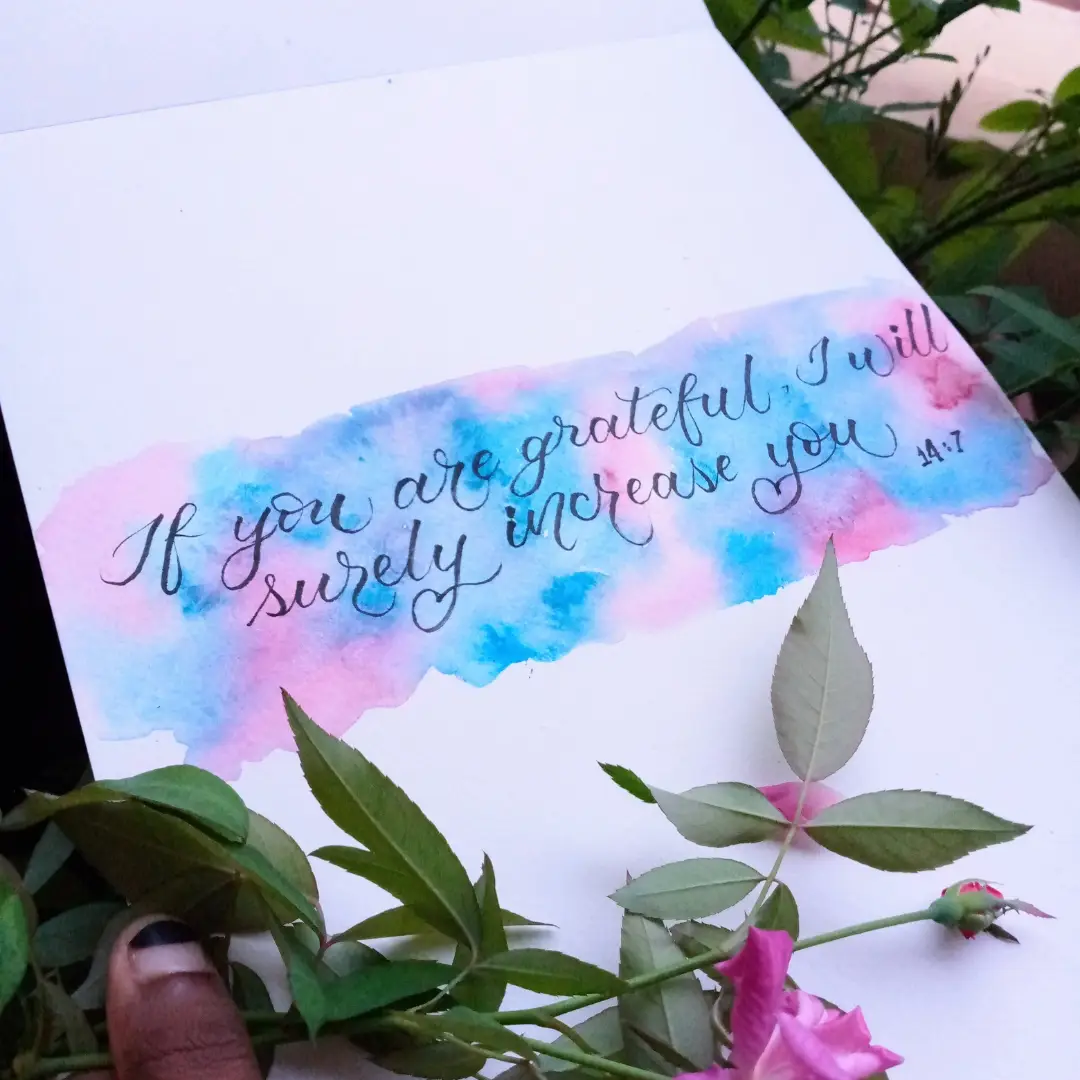 If you are grateful, I will
surely increase you
14:7